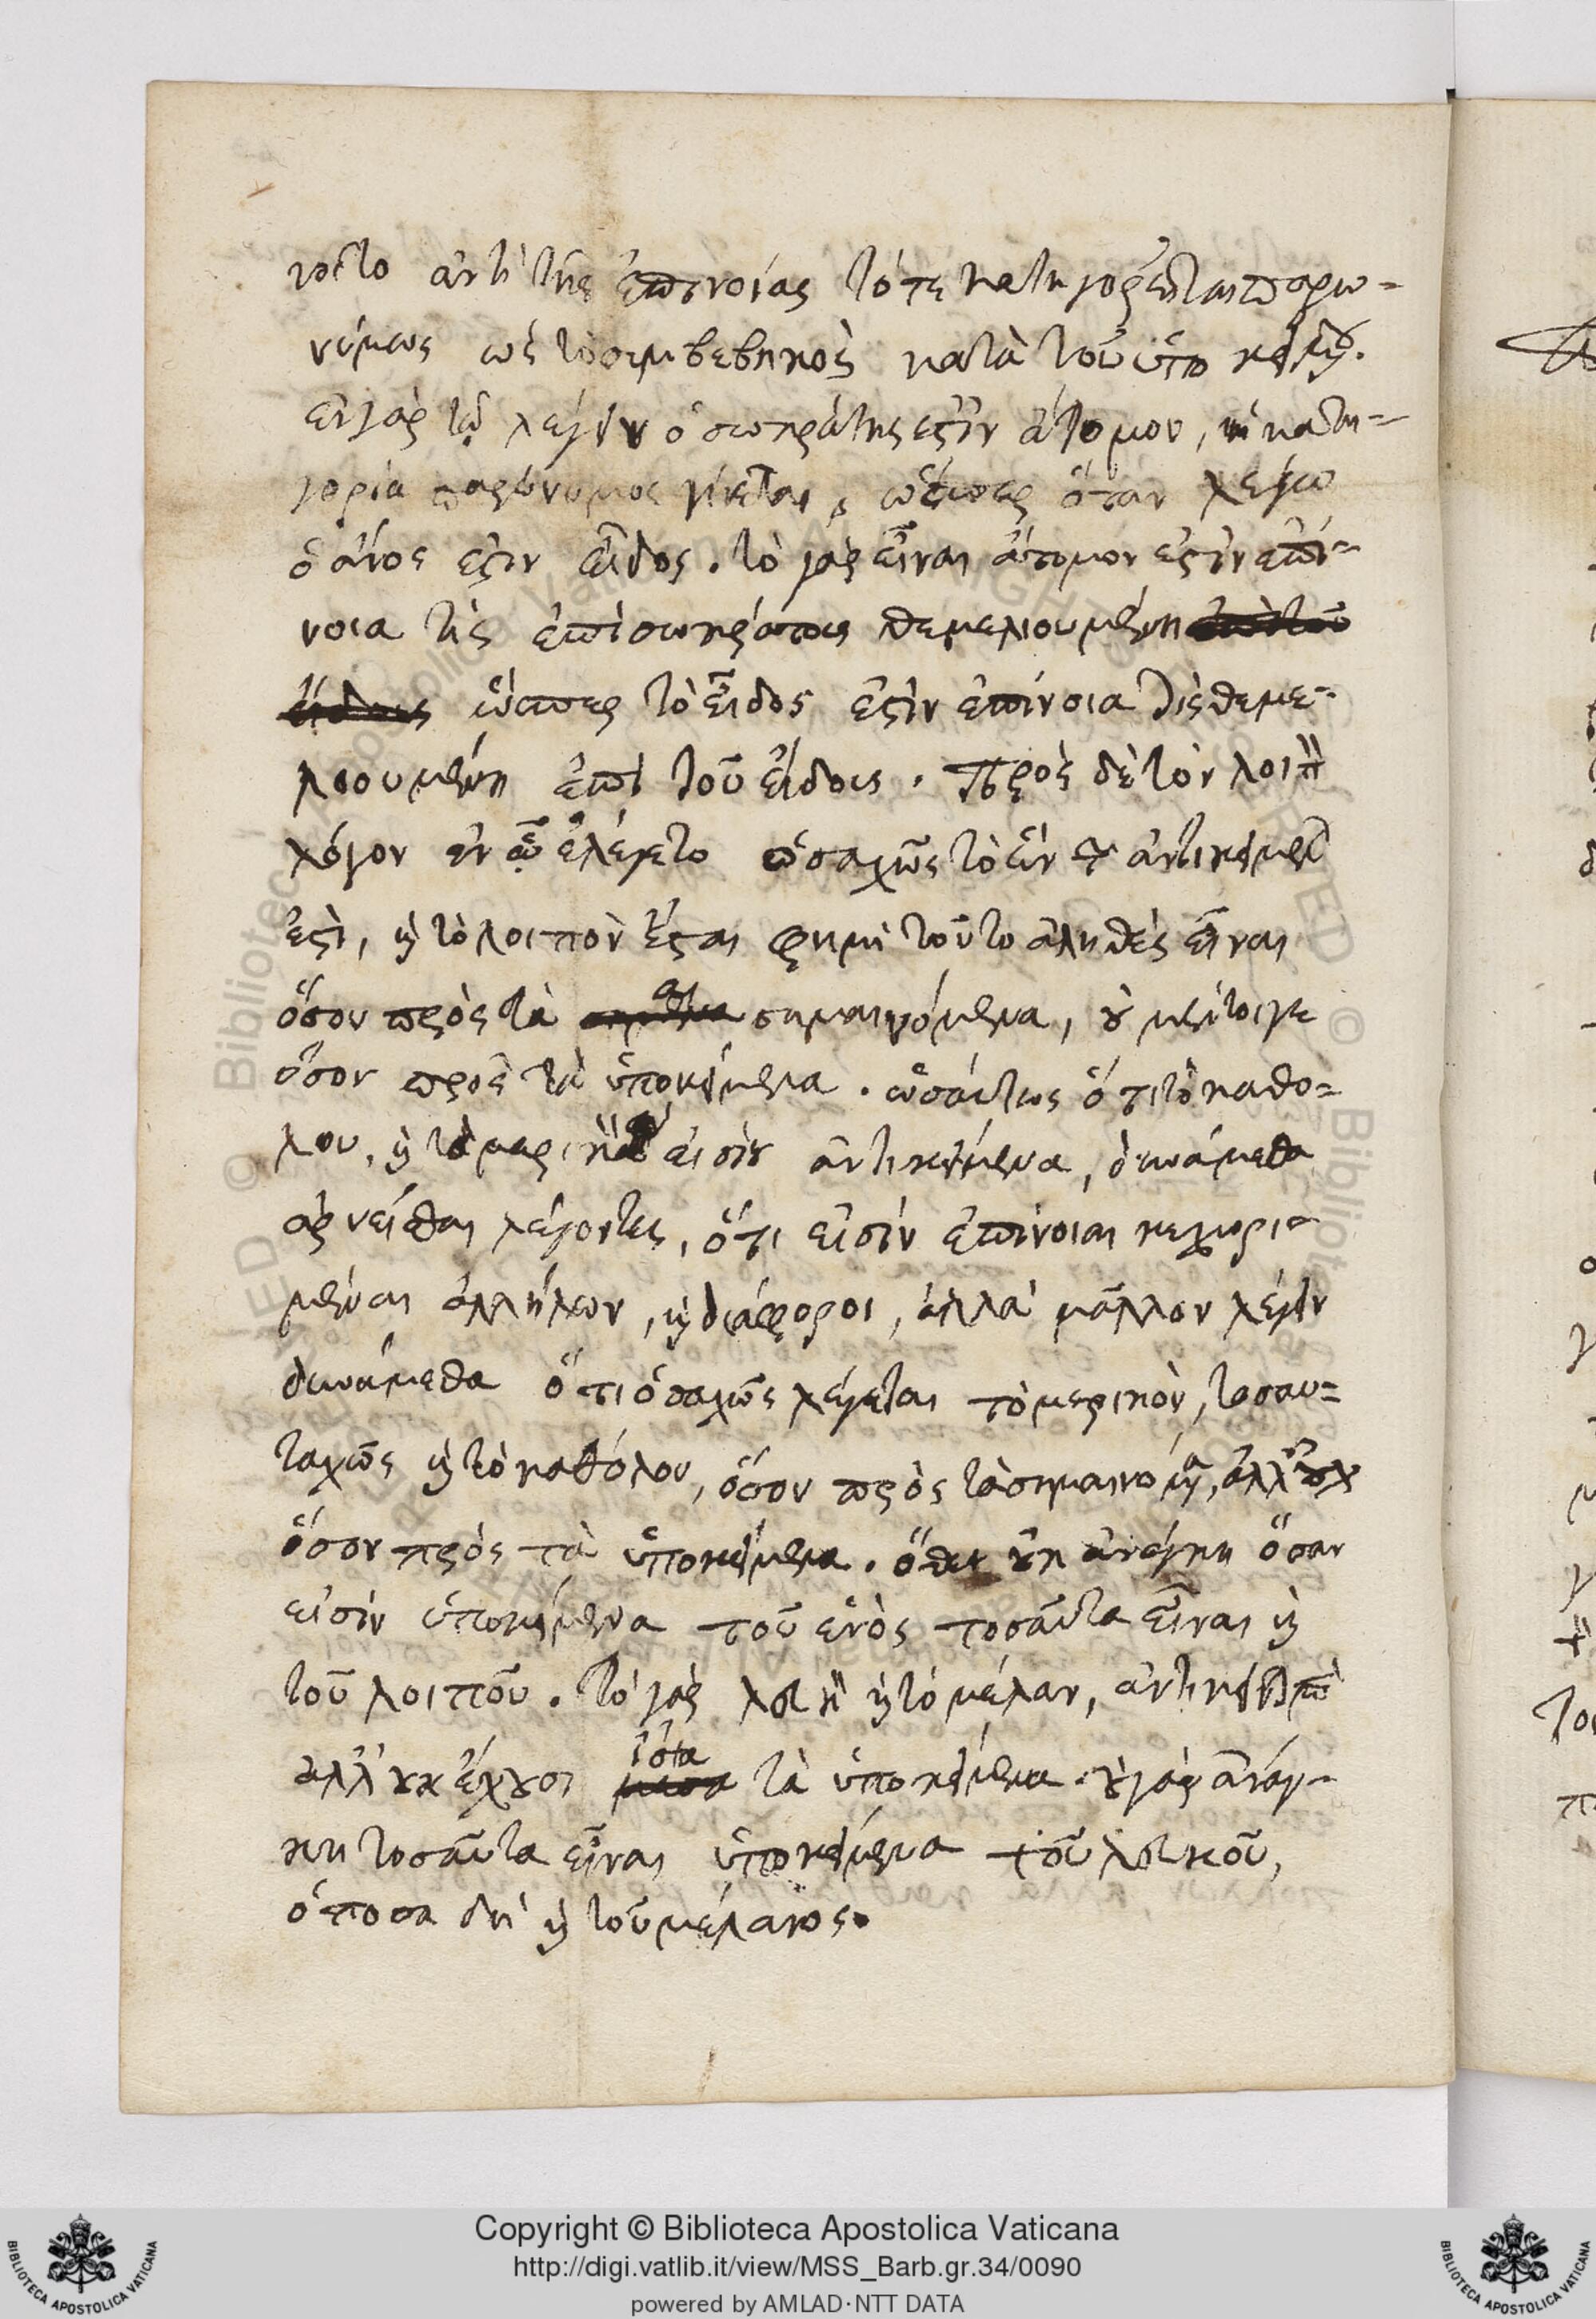 νοῖτο ἀντὶ τῆς ἐπινοίας τότε κατηγορεῖται παρω=
νύμως ὡς τὸ συμβεβηκὸς κατὰ τοῦ ὑποκειμ.
ἐν γὰρ τῷ λέγειν ὁ σωκράτης ἐςὶν ἄτομον, ἡ κατη=
γορία παρώνυμος γίνεται, ὥσπερ ὅταν λέγω
ὁ ἄνος ἐςιν εἶδος. τὸ γὰρ εἶναι ἄτομον ἐςὶν ἐπί=
νοια τὶς ἐπὶ σωκράτους θεμελιουμένη
ὥσπερ τὸ εἶδος ἐςὶν ἐπίνοια τὶς θεμε=
λιουμένη ἐπὶ τοῦ εἴδους. Πρὸς δὲ τὸν λοιπ
λόγον ἐν ᾧ ἐλέγετο ὁσαχῶς τὸ ἓν τ ἀντικειμέν
ἐςὶ, ϗ τὸ λοιπὸν ἔςαι φημὶ τοῦτο ἀληθὲς εἶναι
ὅσον πρὸς τὰ σημαινόμενα, ȣ μέντοιγε
ὅσον πρὸς τὰ ὑποκείμενα. ὡσαύτως ὅτι τὸ καθο=
λου, ϗ τὸ μερικ εἰσὶν ἀντικείμενα, δυνάμεθα
ἀρνεῖσθαι λέγοντες, ὅτι εἰσὶν ἐπίνοιαι κεχωρισ
μέναι ἀλλήλων, ϗ διάφοροι, ἀλλὰ μᾶλλον λέγειν
δυνάμεθα ὅτι ὁσαχῶς λέγεται τὸ μερικὸν, τοσαυ=
ταχῶς ϗ τὸ καθόλου, ὅσον πρὸς τὰ σημαινόμα, ἀλλ' ȣχ
ὅσον πρὸς τὰ ὑποκείμενα. ὅθεν ȣκ ἀνάγκη ὅσαν
εἰσὶν ὑποκείμενα τοῦ ἑνὸς τοσαῦτα εἶναι ϗ
τοῦ λοιποῦ. τὸ γὰρ λευκ ϗ τὸ μέλαν, ἀντικειντ
ἀλλ' ȣκ ἔχȣσι ἴσα τὰ ὑποκείμενα. ȣ γὰρ ἀνάγ=
κη τοσαῦτα εἶναι ὑποκείμενα τοῦ λευκοῦ,
ὁποσα δὴ ϗ τοῦ μέλανος.
Copyright © Biblioteca Apostolica Vaticana
http://digi.vatlib.it/view/MSS_Barb.gr.34/0090
powered by AMLAD·NTT DATA
BIBLIOTECA APOSTOLICA VATICANA
BIBLIOTECA APOSTOLICA VATICANA